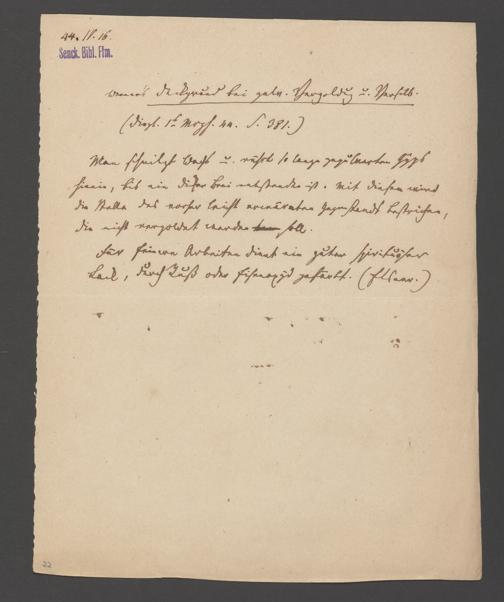 44. IV. 16.
Senck. Bibl. Ffm.
Deckgrund bei galv. Vergoldug u. Versilb.
(Dingl. 1t Mrzhf. 44. S. 381.)
Man schmilzt Wachs u. rührt so lange gepulverten Gyps
hinein, bis ein dicker Brei entstanden ist. Mit diesem wird
die Stelle des vorher leicht erwärmten Gegenstands bestrichen,
die nicht vergoldet werden soll.
Für feinere Arbeiten dient ein guter spirituöser
Lack, durch Ruß oder Eisenoxyd gefärbt. (Elsner.)
22